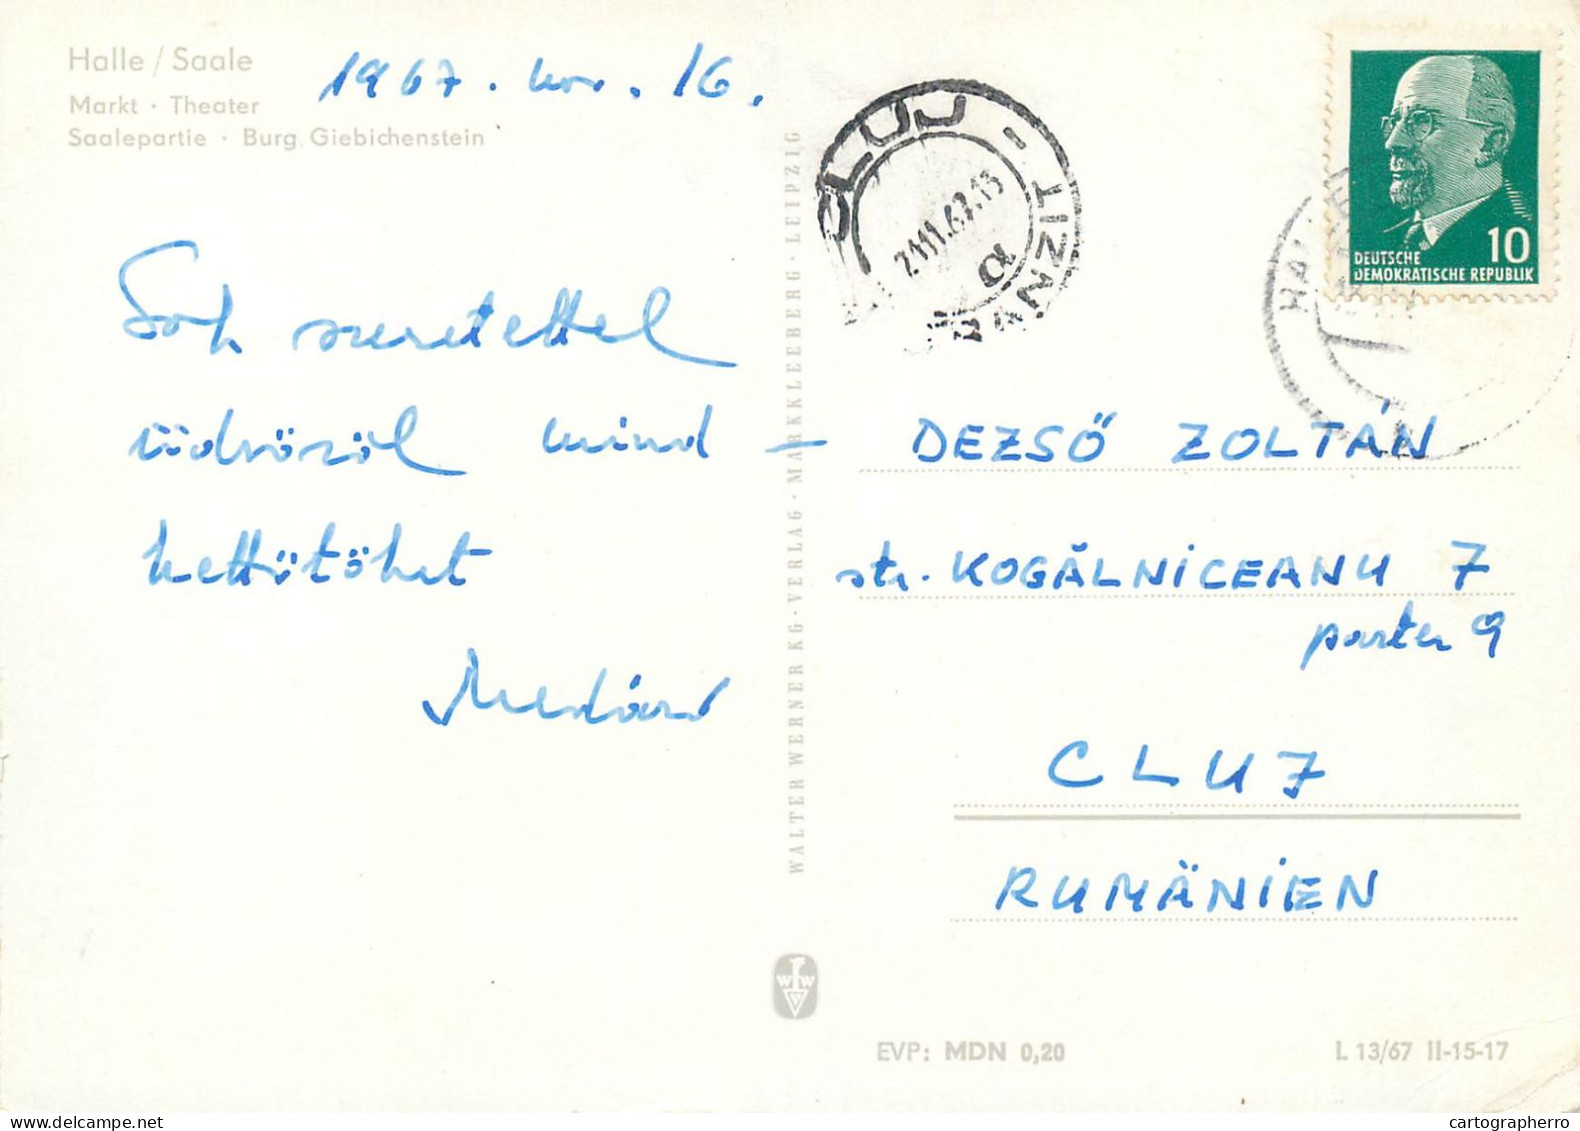 Halle / Saale
Markt · Theater
Saalepartie · Burg Giebichenstein
1967. nov. 16.
Sok szeretettel
üdvözöl mind –
kettőtöket
Medárd
WALTER WERNER KG · VERLAG · MARKKLEEBERG · LEIPZIG
CLUJ
TRANZIT
21.11.67.13
10
DEUTSCHE
DEMOKRATISCHE REPUBLIK
HALLE
DEZSŐ ZOLTÁN
str. KOGĂLNICEANU 7
parter 9
CLUJ
RUMÄNIEN
WW
V
EVP: MDN 0,20
L 13/67 II-15-17
cartographerro